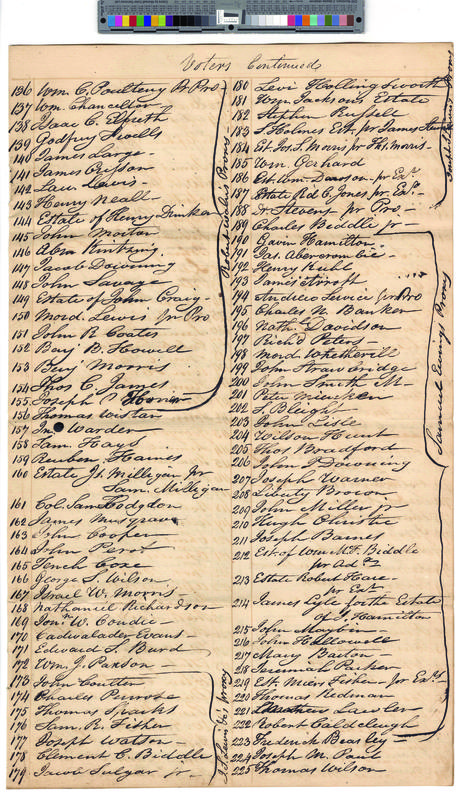 Voters Continued
136 Wm. C. Poulteny Pr Pro
137 Wm. Chancellor
138 Isaac C. Elfreth
139 Godfrey
140 James Large -
141 James Crisson
142 Law Lewis -
143 Henry Neall -
144 Estate of Henry Drinker
145 John Morton
146 Abm Kintzing
147 Jacob Downing
148 John Savage
149 Estate of John Craig -
150 Mord. Lewis pr Pro
151 John R Coates
152 Benj B. Howell
153 Benj Morris
154 Thos C. James
155 Joseph
156 Thomas Wistar
157 Jno Warder
158 Sam. Hays
159 Reuben Haines
160 Estate Js. Milligan pr
Sam. Milligan
161 Col. Sam Hodgdon
162 James Musgrave
163 John Cooper
164 John Perot
165 Tench Coxe
166 George S. Wilson
167 Israel W. Morris
168 Nathaniel Richardson
169 Jon. W. Condie -
170 Cadwalader Evans -
171 Edward S. Burd
172 Wm. J. Paxson
173 John Coulter
174 Charles Penrose
175 Thomas Sparks
176 Sam. R. Fisher
177 Joseph Watson -
178 Clement C. Biddle
179 Jacob Sulgar jr -
Robert Wales Proxy
Proxy
180 Levi Hollingsworth
181 Wm. Jacksons Estate
182 Stephen Russell
183 S. Holmes Est. pr James
184 Est. Jos. S. Morris pr Ths. Morris -
185 Wm. Orchard
186 Est. Wm Dawson - pr Exr.
187 Estate Rid C. Jones pr Exr. -
188 Stevens pr Pro -
189 Charles Biddle jr -
190 Gavin Hamilton
191 Jas. Abercrombie -
192 Henry Kuhl
193 James
194 Andrew Service pr Pro
195 Charles N. Banker
196 Nathl Davidson
197 Richd Peters -
198 Mord Whetherill
199 John Strawbridge
200 John Smith M -
201 Peter Miercken
202 S. Bleight
203 John Lisle
204 Wilson Hunt
205 Thos Bradford
206 John Downing
207 Joseph Warner
208 Liberty Brown
209 John Miller jr
210 Hugh Christie
211 Joseph Barnes
212 Est. of Wm McF. Biddle
pr Ad
213 Estate Robert Hare -
pr Ext
214 James Lyle for the Estate
of J. Hamilton
215 John Maybin
216 John Hallowell
217 Mary Barton -
218 Jeremiah Parker
219 Est. Miers Fisher pr Exrs
220 Thomas Redman
221 Lawler
222 Robert Caldcleugh
223 Frederick Beasley
224 Joseph M. Paul
225 Thomas Wilson
Joseph S. Lewis Proxy
Samuel Ewings Proxy